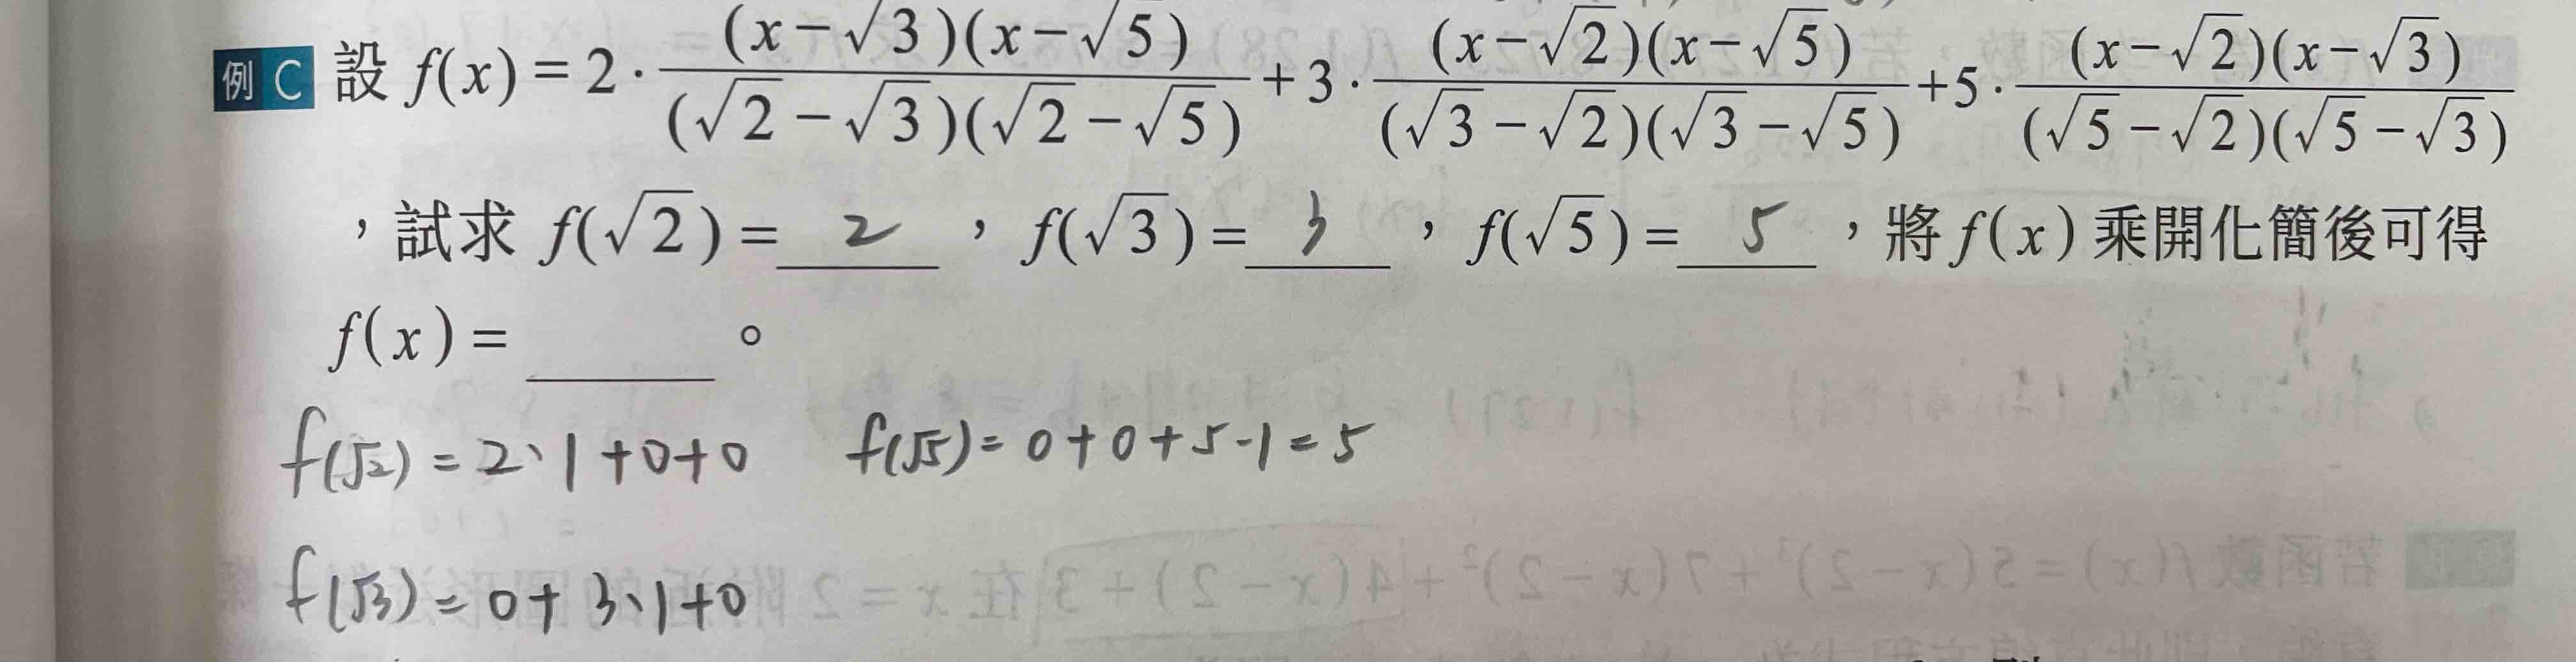 例 C 設 f(x) = 2 · (x−√3)(x−√5) / (√2−√3)(√2−√5) + 3 · (x−√2)(x−√5) / (√3−√2)(√3−√5) + 5 · (x−√2)(x−√3) / (√5−√2)(√5−√3)
，試求 f(√2) = 2 ， f(√3) = 3 ， f(√5) = 5 ，將 f(x) 乘開化簡後可得
f(x) = ＿＿＿。
f(√2) = 2、1 + 0 + 0 f(√5) = 0 + 0 + 5 - 1 = 5
f(√3) = 0 + 3、1 + 0